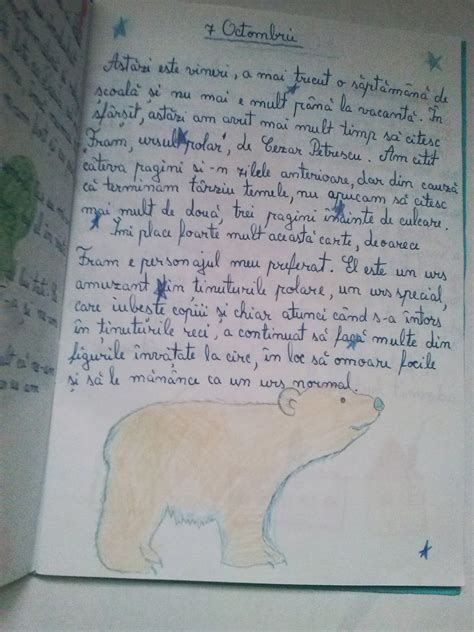 7 Octombrie
Astăzi este vineri, a mai trecut o săptămână de
școală și nu mai e mult până la vacanță. În
sfârșit, astăzi am avut mai mult timp să citesc
"Fram, ursul polar", de Cezar Petrescu. Am citit
câteva pagini și-n zilele anterioare, dar din cauză
că terminam târziu temele, nu apucam să citesc
mai mult de două, trei pagini înainte de culcare.
Îmi place foarte mult această carte, deoarece
Fram e personajul meu preferat. El este un urs
amuzant din ținuturile polare, un urs special,
care iubește copiii și chiar atunci când s-a întors
în ținuturile reci, a continuat să facă multe din
figurile învățate la circ, în loc să omoare focile
și să le mănânce ca un urs normal.